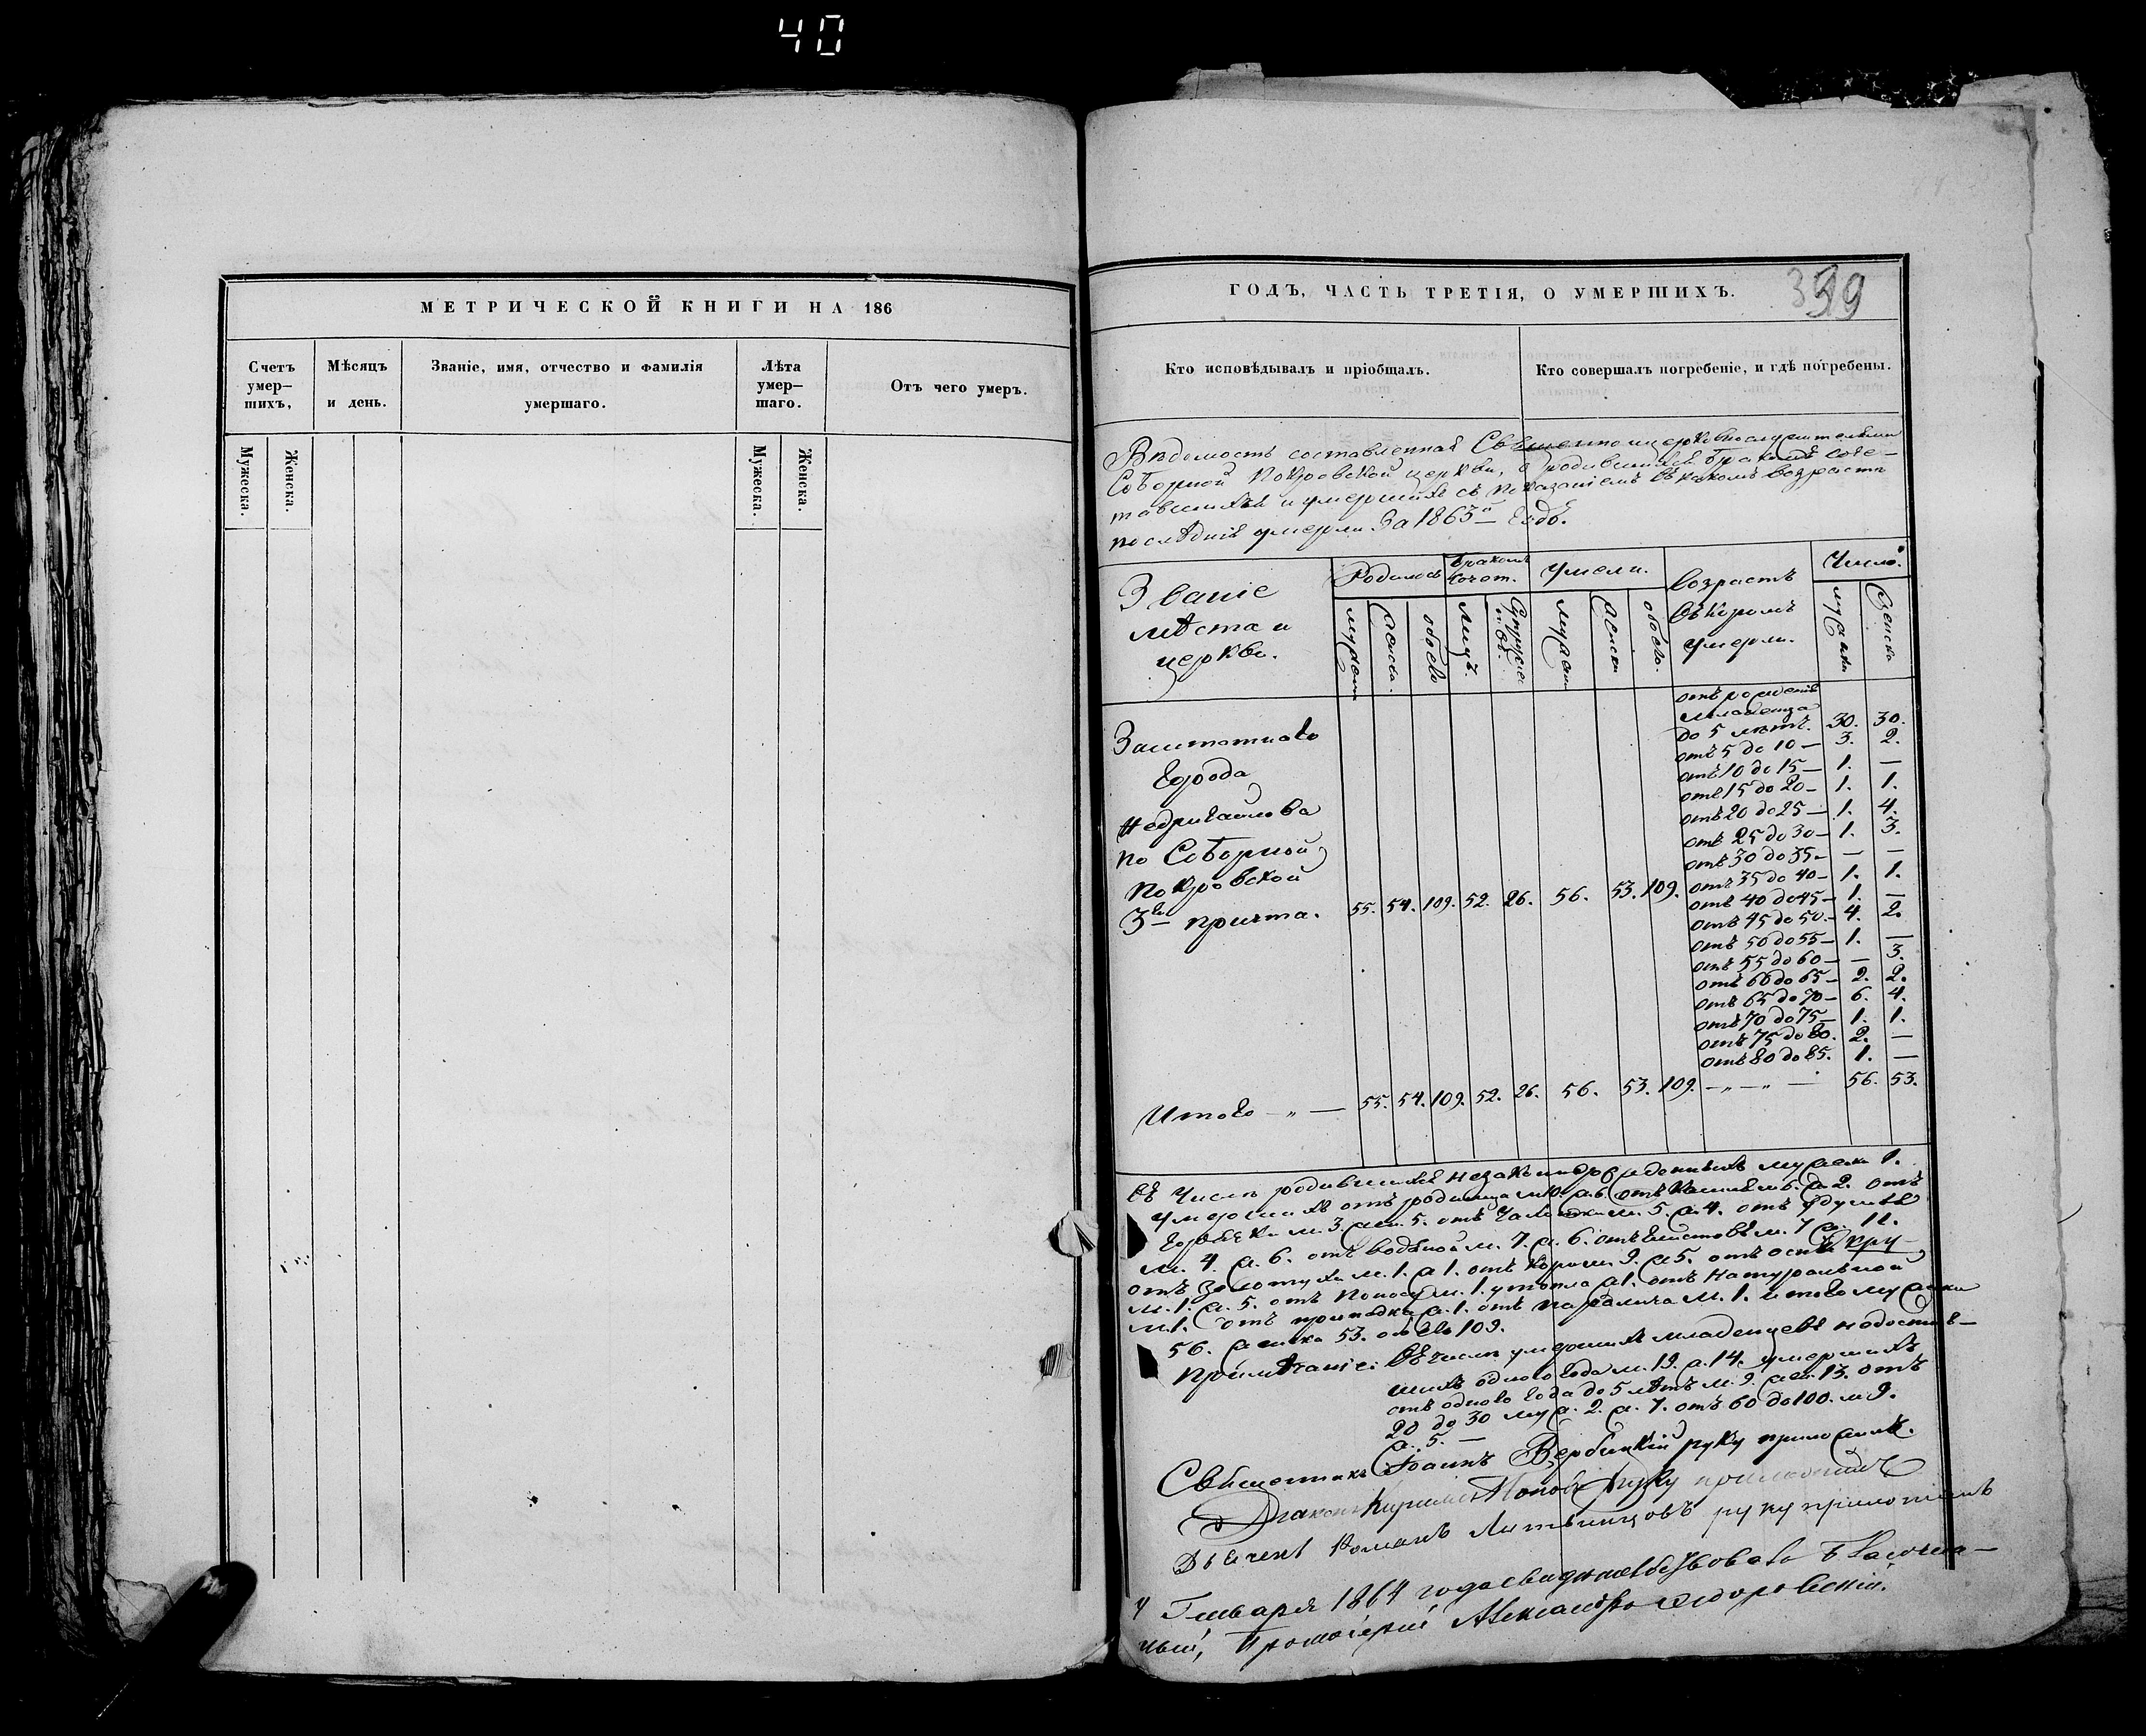 40
МЕТРИЧЕСКОЙ КНИГИ НА 186
Счетъ умер—шихъ,
Мѣсяцъ и день.
Званіе, имя, отчество и фамилія умершаго.
Лѣта умер—шаго.
Отъ чего умеръ.
Мужеска.
Женска.
Мужеска.
Женска.
ГОДЪ, ЧАСТЬ ТРЕТІЯ, О УМЕРШИХЪ.
399
Кто исповѣдывалъ и пріобщалъ.
Кто совершалъ погребеніе, и гдѣ погребены.
Вѣдомость составленная Священноцерковнослужителями
Соборной Покровской церкви, о родившихся, бракомъ соче—
тавшихся и умершихъ съ показаніемъ въ какомъ возрастѣ
послѣдніе умерли. За 1863й Годъ.
Званіе
мѣста и
церкви.
Родилось
бракомъ сочет.
умерли.
возрастъ
въ коромъ
умерли.
Число.
мужска
женска.
обоего
Лицъ.
Супружествъ.
мужска
женска
обоего.
мужска
женска
отъ рожденія
младенца
до 5 лѣтъ. 30. 30.
отъ 5 до 10— 3. 2.
отъ 10 до 15— 1. —
отъ 15 до 20— 1. 1.
отъ 20 до 25— 1. 4.
отъ 25 до 30— 1. 3.
отъ 30 до 35— — —
отъ 35 до 40— 1. 1.
отъ 40 до 45— 1. —
отъ 45 до 50.— 4. 2.
отъ 50 до 55— 1. —
отъ 55 до 60— — 3.
отъ 60 до 65— 2. 2.
отъ 65 до 70— 6. 4.
отъ 70 до 75— 1. 1.
отъ 75 до 80. 2. —
отъ 80 до 85. 1. —
Заштатнаго
города
Недригайлова
по Соборной
Покровской
3го причта. 55. 54. 109. 52. 26. 56. 53. 109.
Итого — „ — 55. 54. 109. 52. 26. 56. 53. 109. — „ — „ — 56. 53.
Въ числѣ родившихся незаконнорожденныхъ мужска 1.
умершихъ отъ родимца м. 10. ж. 6. отъ кашля м. 6. ж. 2. отъ
горячки м. 3. жен. 5. отъ м. 5. ж. 4. отъ удушья
м. 4. ж. 6. отъ водяной м. 7. ж. 6. отъ глистовъ м. 7 ж. 11.
отъ золотухи м. 1. ж 1. отъ кори м. 9. ж 5. отъ оспы
м. 1. ж. 5. отъ поносу м. 1. утопла ж 1. отъ натуральной
м. 1. отъ припадка ж. 1. отъ паралича м. 1. итого мужска
56. женска 53. обоего 109.
Примѣчаніе: Въ числѣ умершихъ младенцевъ недостиг—
шихъ одного года м. 19. ж. 14. умершихъ
отъ одного года до 5 лѣтъ м. 9. жен. 13. отъ
20 до 30 муж. 2. ж. 7. отъ 60 до 100. м 9.
ж. 5. —
Священникъ Іоаннъ Вербицкій руку приложилъ.
Діаконъ Кириллъ Поповъ руку приложилъ
Дьячекъ Романъ Литвинцовъ руку приложилъ
4 Генваря 1864 года свидѣтельствовалъ Благочин—
ный, Протоіерей Александръ